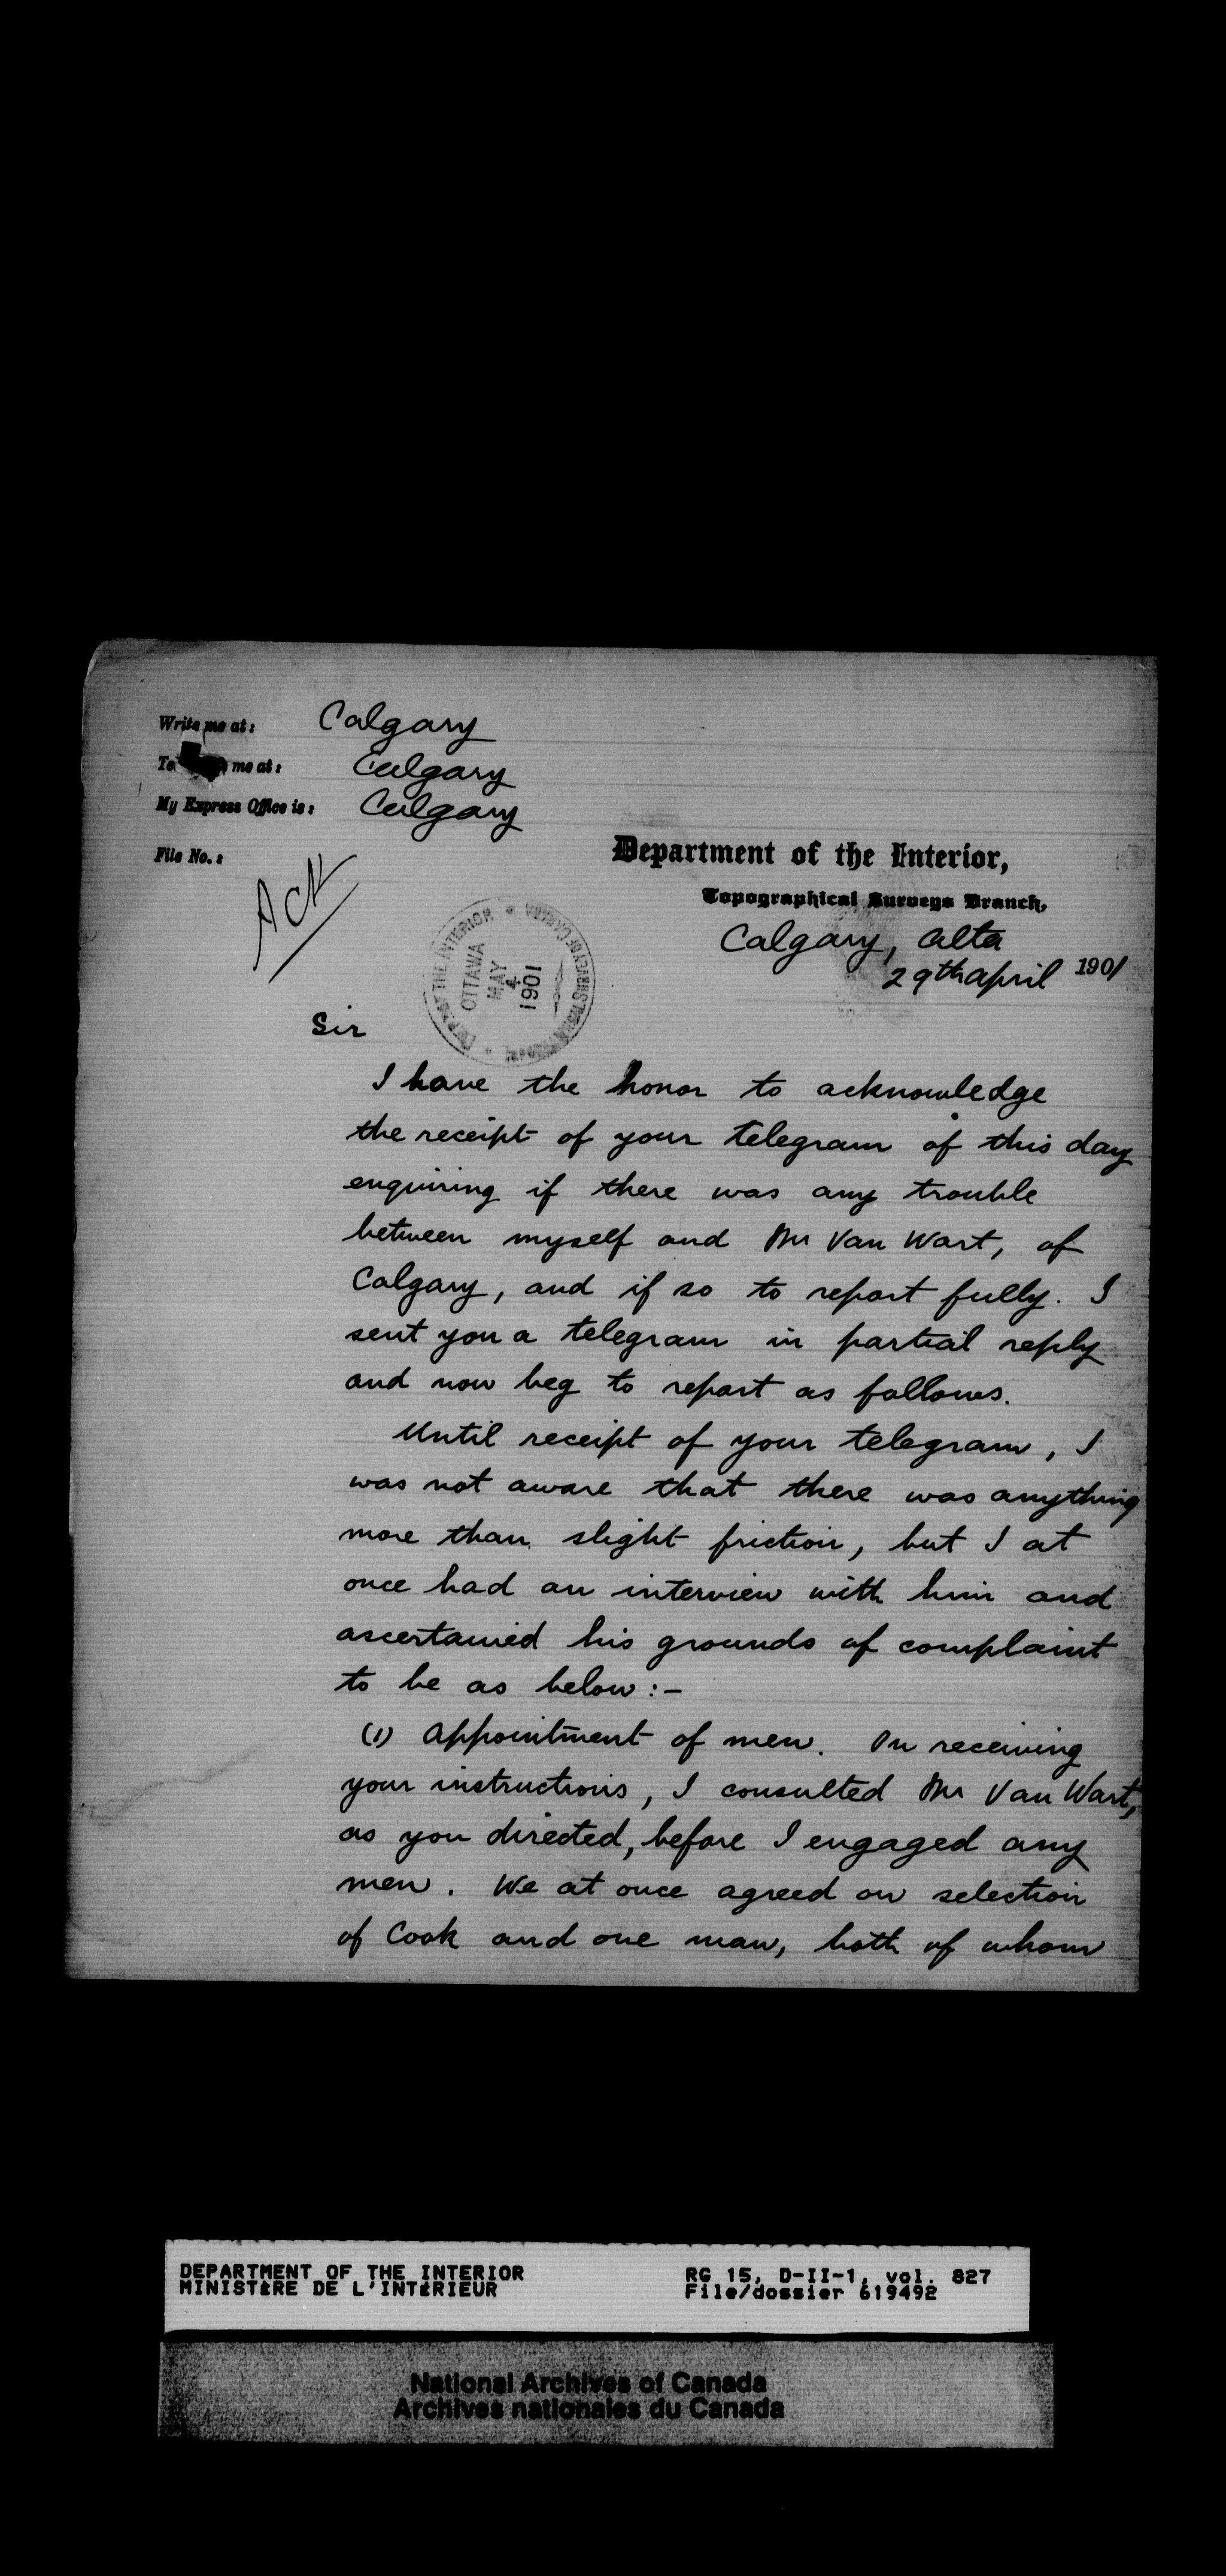 Write me at: Calgary
To me at: Calgary
My Express Office is: Calgary
File No.:
Ack
Department of the Interior,
Topographical Surveys Branch,
Calgary, Alta
29th April 1901
THE INTERIOR
OTTAWA
MAY
4
1901
Sir
I have the honor to acknowledge
the receipt of your telegram of this day
enquiring if there was any trouble
between myself and Mr Van Wart, of
Calgary, and if so to report fully. I
sent you a telegram in partial reply
and now beg to report as follows.
Until receipt of your telegram, I
was not aware that there was anything
more than slight friction, but I at
once had an interview with him and
ascertained his grounds of complaint
to be as below:-
(1) Appointment of men. On receiving
your instructions, I consulted Mr Van Wart,
as you directed, before I engaged any
men. We at once agreed on selection
of Cook and one man, both of whom
DEPARTMENT OF THE INTERIOR
MINISTÈRE DE L'INTÉRIEUR
RG 15, D-II-1, vol. 827
File/dossier 619492
National Archives of Canada
Archives nationales du Canada